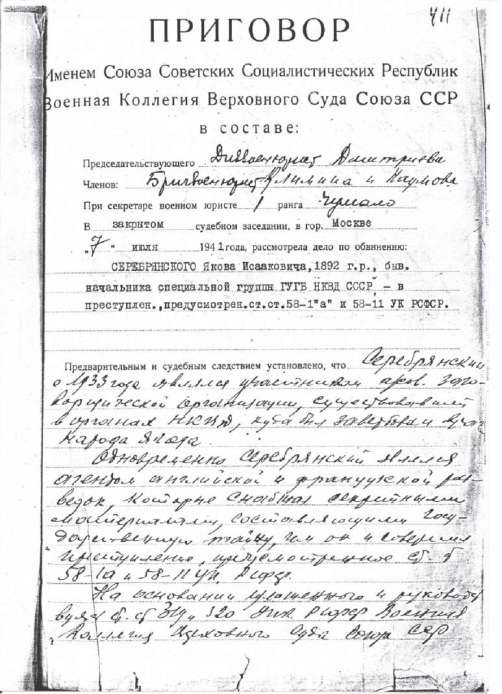 411
ПРИГОВОР
Именем Союза Советских Социалистических Республик
Военная Коллегия Верховного Суда Союза ССР
в составе:
Председательствующего Диввоенюрист Дмитриева
Членов: Бригвоенюрист Климина и Наумова
При секретаре военном юристе 1 ранга
В закрытом судебном заседании, в гор. Москве
„7" июля 1941 года, рассмотрела дело по обвинению:
СЕРЕБРЯНСКОГО Якова Исааковича, 1892 г.р., быв.
начальника специальной группы ГУГБ НКВД СССР, - в
преступлен., предусмотрен. ст. ст. 58-1 "а" и 58-11 УК РСФСР.
Предварительным и судебным следствием установлено, что Серебрянский
с 1933 года являлся участником заго-
ворщической организации, существовавшей
в органах НКВД, куда был завербован
народа Ягода
Одновременно Серебрянский являлся
агентом английской и французской раз-
ведок, которые снабжал секретными
материалами, составляющими госу-
дарственную тайну, чем он и совершил
преступление, предусмотренное ст. ст.
58-1а и 58-11 УК РСФСР.
На основании изложенного и руковод-
ст. ст. 319 и 320 УПК РСФСР Военная
Коллегия Верховного Суда Союза ССР